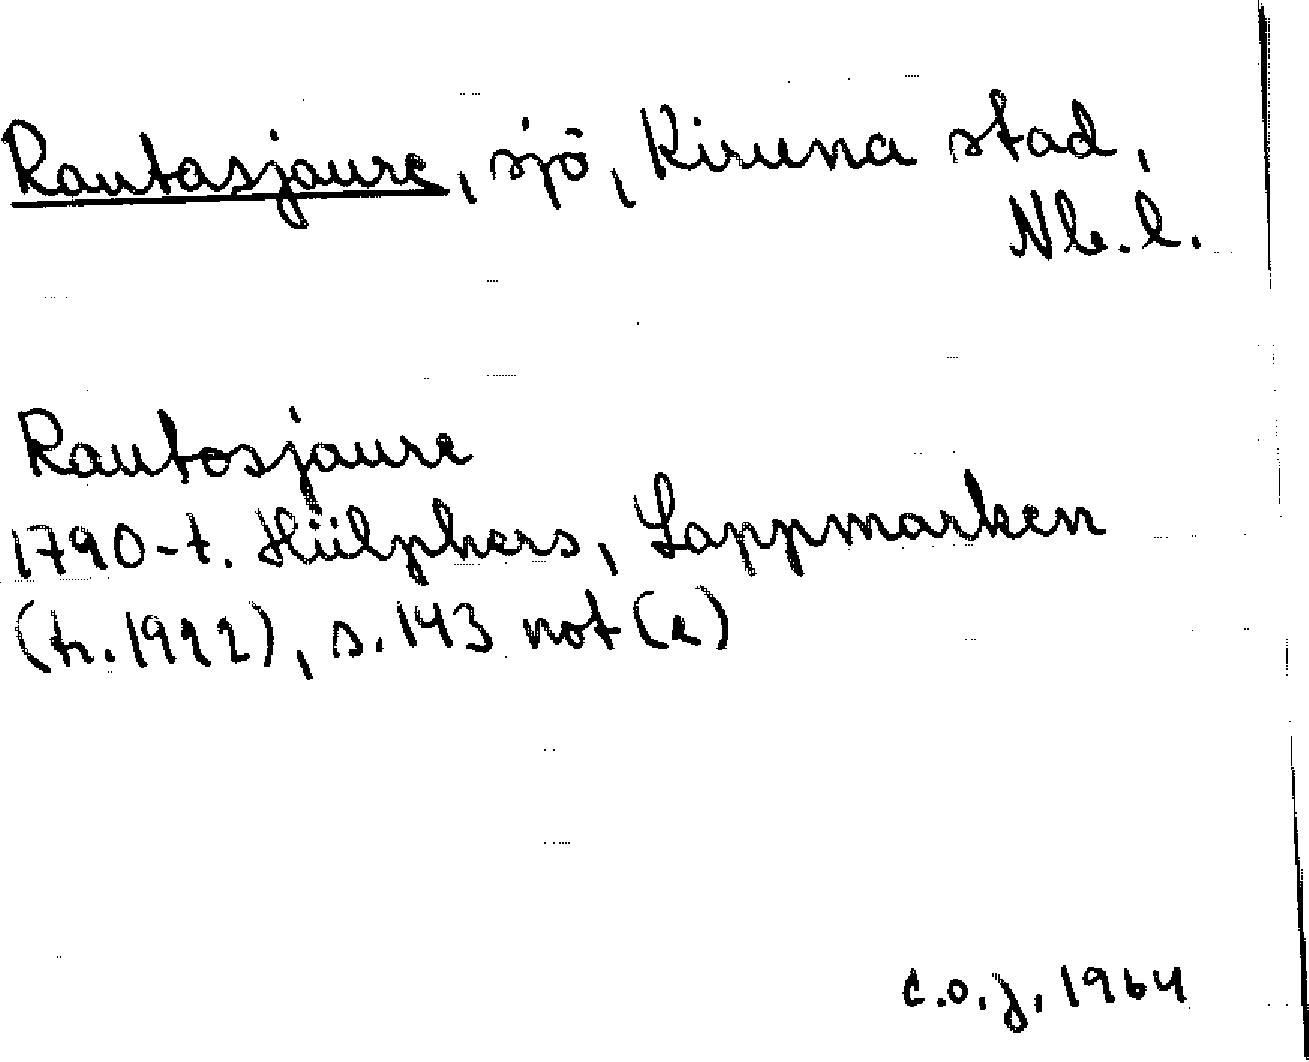 Rautasjaure, sjö, Kiruna stad,
Nb. l.
Rautosjaure
1790-t. Hülphers, Lappmarken
(tr. 1922), s. 143 not (a)
C.O.J. 1964